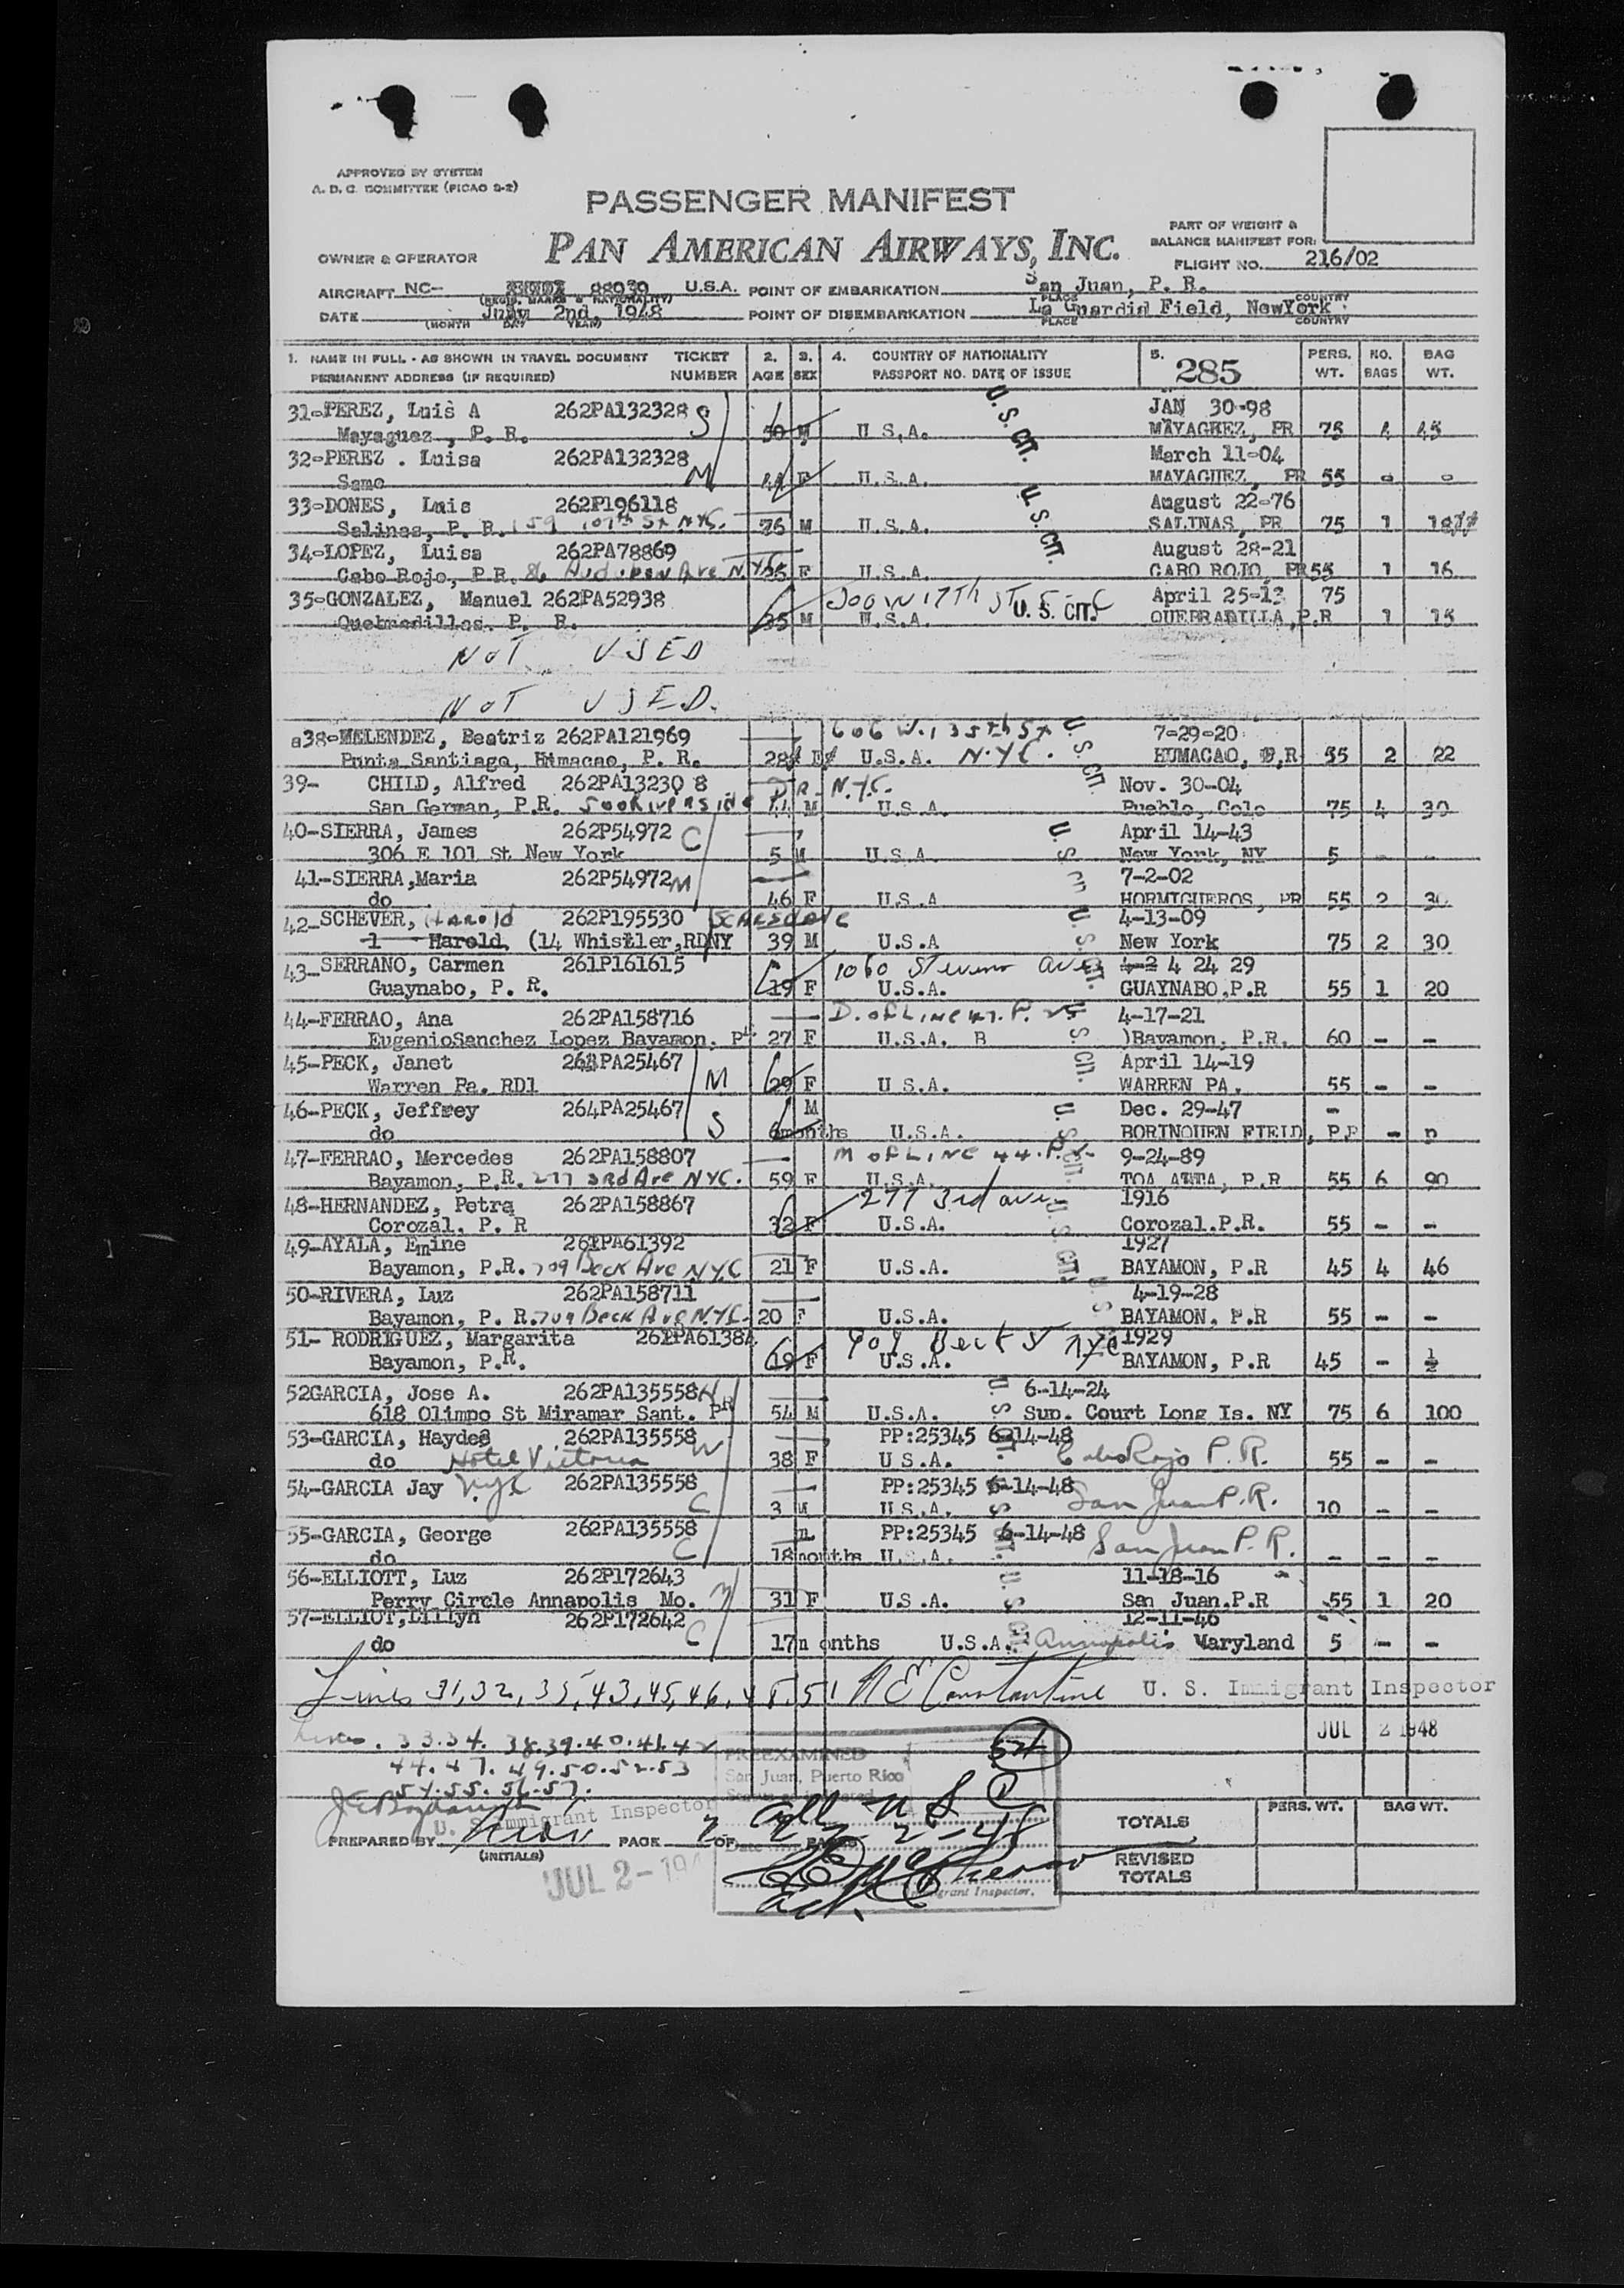 APPROVED BY SYSTEM
A. D. C. COMMITTEE (PICAO 2-2)
PASSENGER MANIFEST
PAN AMERICAN AIRWAYS, INC.
PART OF WEIGHT &
BALANCE MANIFEST FOR:
OWNER & OPERATOR
FLIGHT NO. 216/02
AIRCRAFT NC- 88039 U.S.A. POINT OF EMBARKATION San Juan, P. R.
(REGIS. MARKS & NATIONALITY) PLACE COUNTRY
DATE July 2nd, 1948 POINT OF DISEMBARKATION La Guardia Field, NewYork
(MONTH DAY YEAR) PLACE COUNTRY
1. NAME IN FULL - AS SHOWN IN TRAVEL DOCUMENT TICKET 2. 3. 4. COUNTRY OF NATIONALITY 5. 285 PERS. NO. BAG
PERMANENT ADDRESS (IF REQUIRED) NUMBER AGE SEX PASSPORT NO. DATE OF ISSUE WT. BAGS WT.
31-PEREZ, Luis A 262PA132328 S JAN 30-98
Mayaguez, P. R. 50 M U S.A. U. S. CIT. MAYAGUEZ, PR 75 4 45
32-PEREZ . Luisa 262PA132328 March 11-04
Same M 44 F U.S.A. MAYAGUEZ, PR 55 - -
33-DONES, Luis 262P196118 August 22-76
Salinas, P. R. 159 107th St NYC. 76 M U.S.A. U. S. CIT. SALINAS, PR 75 1
34-LOPEZ, Luisa 262PA78869 August 28-21
Cabo Rojo, P.R. 86 Audubon Ave N.Y.C. F U.S.A. CABO ROJO, PR 55 1 16
35-GONZALEZ, Manuel 262PA52938 500 W 17th St April 25-13 75
Quebradillas. P. R. 35 M U.S.A. U. S. CIT. QUEBRADILLA,P.R 1 15
NOT USED
NOT USED.
38-MELENDEZ, Beatriz 262PA121969 606 W. 135th St 7-29-20
Punta Santiago, Humacao, P. R. 28 F U.S.A. N.Y.C. U. S. CIT. HUMACAO, P.R 55 2 22
39- CHILD, Alfred 262PA13230 8 DR. N.Y.C. Nov. 30-04
San German, P.R. 500 Riverside 44 M U.S.A. Pueblo, Colo 75 4 30
40-SIERRA, James 262P54972 C April 14-43
306 E 101 St New York 5 M U.S.A U. S. CIT. New York, NY 5 - -
41-SIERRA,Maria 262P54972 M 7-2-02
do 46 F U.S.A HORMIGUEROS, PR 55 2 30
42-SCHEVER, Harold 262P195530 Scarsdale 4-13-09
1 Harold (14 Whistler,RDNY 39 M U.S.A U. S. CIT. New York 75 2 30
43-SERRANO, Carmen 261P161615 1060 Stevens Ave 4-2 4 24 29
Guaynabo, P. R. 19 F U.S.A. GUAYNABO,P.R 55 1 20
44-FERRAO, Ana 262PA158716 D. of Line 47. P. 2 4-17-21
EugenioSanchez Lopez Bayamon, PR 27 F U.S.A. B U. S. CIT. )Bayamon, P.R. 60 - -
45-PECK, Janet 264PA25467 April 14-19
Warren Pa. RD1 M 29 F U S.A. WARREN PA. 55 - -
46-PECK, Jeffrey 264PA25467 M Dec. 29-47 -
do S 6months U.S.A. BORINQUEN FIELD, P.R - -
47-FERRAO, Mercedes 262PA158807 M of Line 44. P. 2 9-24-89
Bayamon, P.R. 277 3rd Ave NYC. 59 F U.S.A. U. S. CIT. TOA ALTA, P.R 55 6 90
48-HERNANDEZ, Petra 262PA158867 277 3rd ave 1916
Corozal. P. R 32 F U.S.A. Corozal.P.R. 55 - -
49-AYALA, Emine 261PA61392 1927
Bayamon, P.R. 709 Beck Ave N.Y.C 21 F U.S.A. U. S. CIT. BAYAMON, P.R 45 4 46
50-RIVERA, Luz 262PA158711 4-19-28
Bayamon, P. R. 709 Beck Ave N.Y.C. 20 F U.S.A. BAYAMON, P.R 55 - -
51- RODRIGUEZ, Margarita 261PA61384 909 Beck St NYC 1929
Bayamon, P.R. 19 F U.S.A. BAYAMON, P.R 45 - ½
52GARCIA, Jose A. 262PA135558 H 6-14-24
618 Olimpo St Miramar Sant. PR 54 M U.S.A. Sup. Court Long Is. NY 75 6 100
53-GARCIA, Haydee 262PA135558 W PP:25345 6-14-48
do Hotel Victoria 38 F U S.A. Cabo Rojo P. R. 55 - -
54-GARCIA Jay NYC 262PA135558 C PP:25345 6-14-48
3 M U.S.A. San Juan P.R. 10 - -
55-GARCIA, George 262PA135558 C PP:25345 6-14-48
do 18months U.S.A. San Juan P. R. - - -
56-ELLIOTT, Luz 262P172643 11-18-16
Perry Circle Annapolis Mo. M 31 F U.S.A. San Juan.P.R 55 1 20
57-ELLIOT,Lillyn 262P172642 C 12-11-46
do 17m onths U.S.A. Annapolis Maryland 5 - -
Lines 31,32,35,43,45,46,48,51 N E Constantine U. S. Immigrant Inspector
JUL 2 1948
Lines. 33.34. 38.39.40.41.42
44.47.49.50.52.53
54.55.56.57.
54
PREEXAMINED
San Juan, Puerto Rico
All U S C
U. S. Immigrant Inspector
PREPARED BY (INITIALS) PAGE 2 OF 2 PAGES
Date 7-2-48
Immigrant Inspector.
JUL 2 - 194
PERS. WT. BAG WT.
TOTALS
REVISED
TOTALS